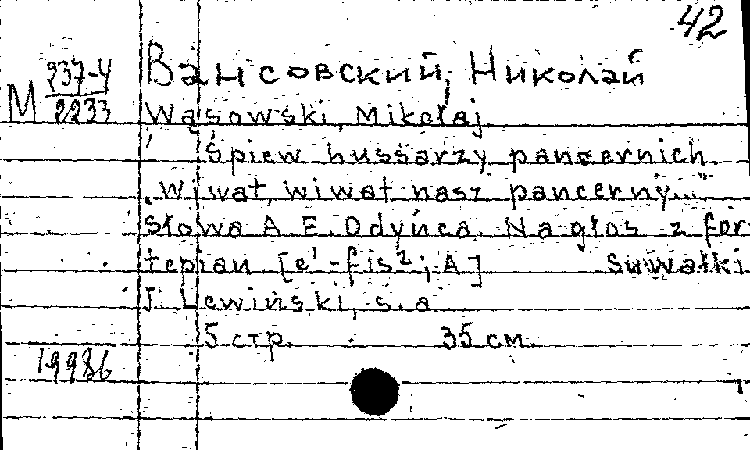 42
М 237-4
2233
Вансовский, Николай
Wąsowski, Mikołaj
Śpiew hussarzy pancernich
„wiwat, wiwat nasz pancerny..."
Słowa A. E. Odyńca. Na głos z for
tepian [e¹-fis²; A] Suwałki
J. Lewiński, s.a.
5 стр. 35 см.
19986